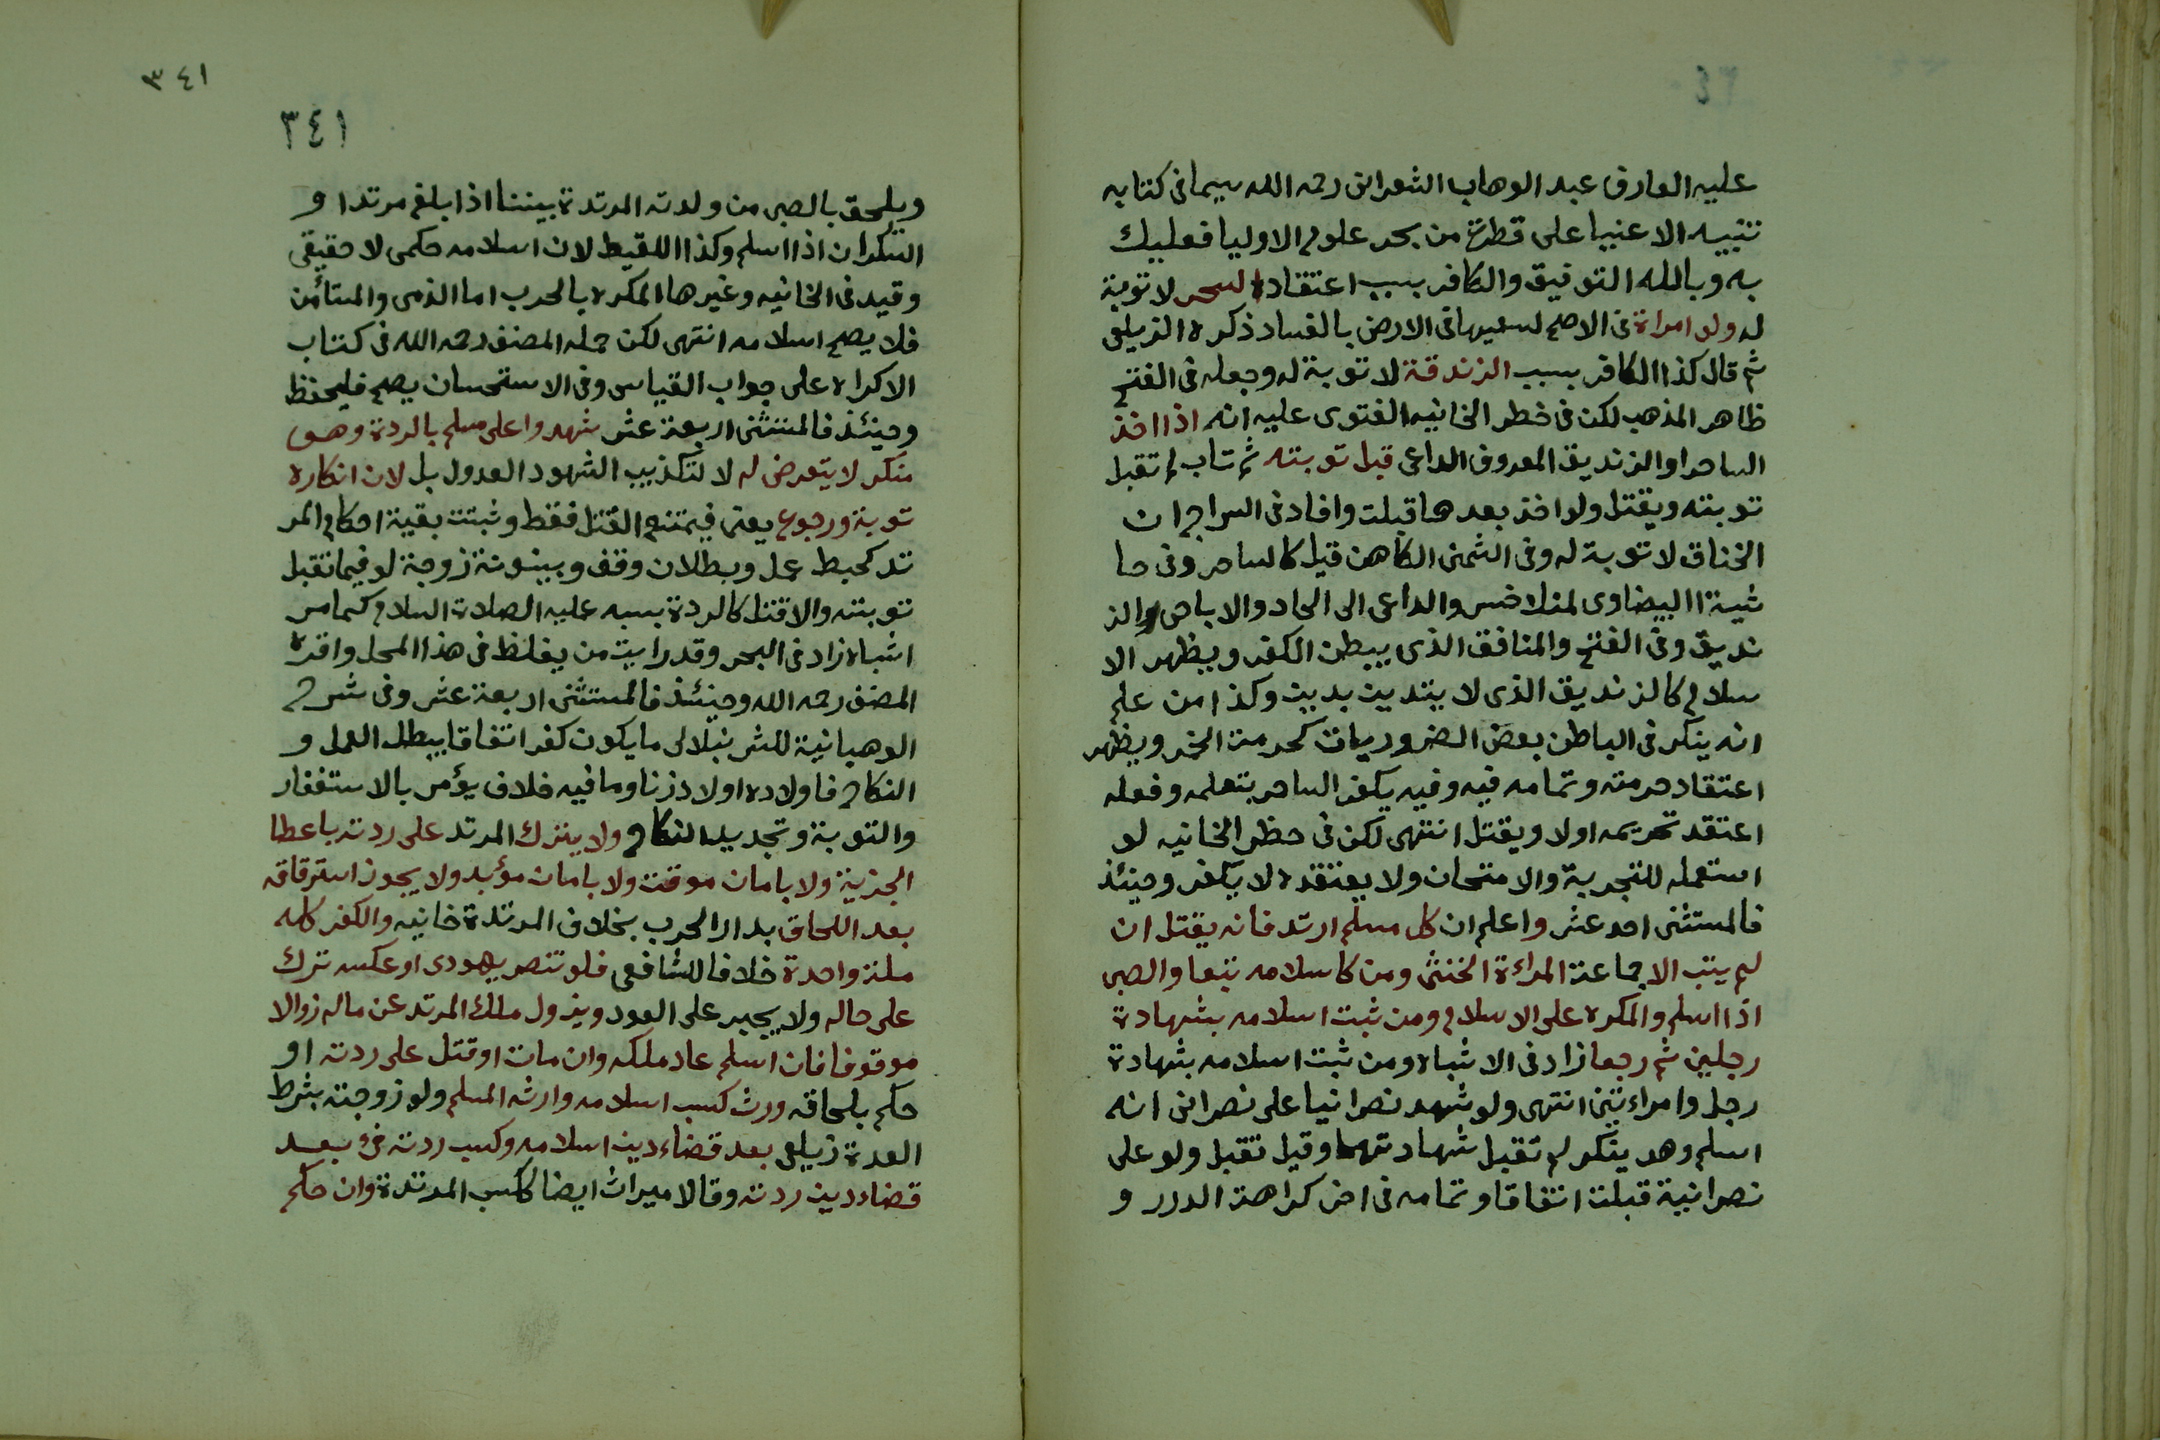 عليه العارف عبد الوهاب الشعرانى رحمه الله سيما فى كتابه
تنبيه الاغنيا على قطرة من بحر علوم الاوليا فعليك
به وبالله التوفيق والكافر بسبب اعتقاده السحر لا توبة
له ولو امراة فى الاصح لسعيها فى الارض بالفساد ذكره الزيلعى
ثم قال كذا الكافر بسبب الزندقة لا توبة له وجعله فى الفتح
ظاهر المذهب لكن فى خطر الخانيه الفتوى عليه انه اذا اخذ
الساحر او الزنديق المعروف الداعى قبل توبته ثم تاب لم تقبل
توبته ويقتل ولو اخذ بعدها قبلت وافاد فى السراج ان
الخناق لا توبة له وفى الشمنى الكاهن قيل كالساحر وفى حا
شية البيضاوى لمنلا خسر والداعى الى الحاد والاباحى والز
نديق وفى الفتح والمنافق الذى يبطن الكفر ويظهر الا
سلام كالزنديق الذى لا يتدين بدين وكذا من علم
انه ينكر فى الباطن بعض الضروريات كحرمة الخمر ويظهر
اعتقاد حرمته وتمامه فيه وفيه يكفر الساحر بتعلمه وفعله
اعتقد تحريمه اولا ويقتل انتهى لكن فى حظر الخانيه لو
استعمله للتجربة والامتحان ولا يعتقده لا يكفر وحينئذ
فالمستثنى احد عشر واعلم ان كل مسلم ارتد فانه يقتل ان
لم يتب الا جماعة المراءة الخنثى ومن كا سلامه تبعا والصبى
اذا اسلم والمكره على الاسلام ومن ثبت اسلامه بشهادة
رجلين ثم رجعا زاد فى الاشباه ومن ثبت اسلامه بشهادة
رجل وامراءتين انتهى ولو شهد نصرانيا على نصرانى انه
اسلم وهو ينكر لم تقبل شهادتهما وقيل تقبل ولو على
نصرانية قبلت اتفاقا وتمامه فى اخر كراهة الدرر و
٣٤١
٣٤١
ويلحق بالصبى من ولدته المرتدة بيننا اذا بلغ مرتدا و
السكران اذا اسلم وكذا اللقيط لان اسلامه حكمى لا حقيقى
وقيد فى الخانيه وغيرها المكره بالحرب اما الذمى والمستأمن
فلا يصح اسلامه انتهى لكن حمله المصنف رحمه الله فى كتاب
الاكراه على جواب القياس وفى الاستحسان يصح فليحفظ
وحينئذ فالمستثنى اربعة عشر شهدوا على مسلم بالردة وهو
منكر لا يتعرض له لا لتكذيب الشهود العدول بل لان انكاره
توبة ورجوع يعنى فيمتنع القتل فقط وثبتت بقية احكام المر
تد كحبط عمل وبطلان وقف وبينونة زوجة لو فيما تقبل
توبته والا قتل كالردة بسبه عليه الصلاة السلام كما مر
اشباه زاد فى البحر وقد رايت من يغلط فى هذا المحل واقره
المصنف رحمه الله وحينئذ فالمستثنى اربعة عشر وفى شرح
الوهبانية للشرنبلالى ما يكون كفر اتفاقا يبطل العمل و
النكاح فاولاده اولاد زنا وما فيه خلاف يؤمر بالاستغفار
والتوبة وتجديد النكاح ولا يترك المرتد على ردته باعطا
الجزية ولا بامان موقت ولا بامان مؤبد ولا يجوز استرقاقه
بعد اللحاق بدار الحرب بخلاف المرتدة خانيه والكفر كله
ملة واحدة خلافا للشافعى فلو تنصر يهودى او عكسه ترك
على حاله ولا يجبر على العود ويزول ملك المرتد عن ماله زوالا
موقوفا فان اسلم عاد ملكه وان مات او قتل على ردته او
حكم بلحاقه ورث كسب اسلامه وارثه المسلم ولو زوجته بشرط
العدة زيلعى بعد قضاء دين اسلامه وكسب ردته فئ بعد
قضاء دين ردته وقالا ميراث ايضا ككسب المرتدة وان حكم